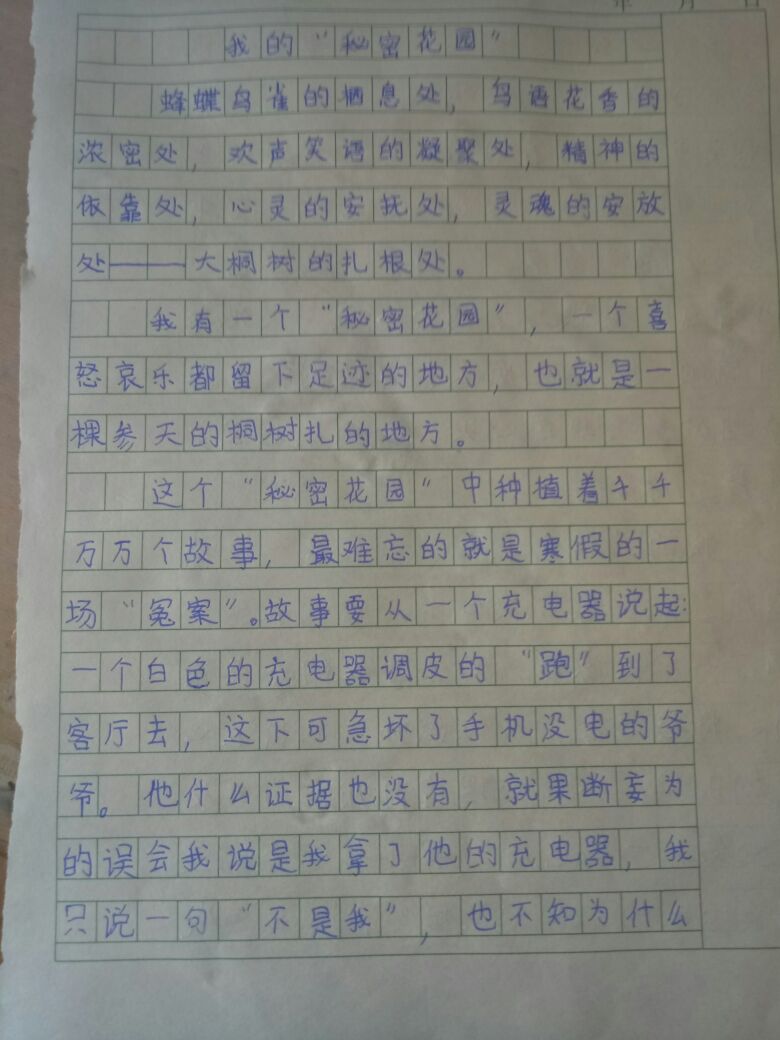 年 月 日
我的“秘密花园”
蜂蝶鸟雀的栖息处，鸟语花香的
浓密处，欢声笑语的凝聚处，精神的
依靠处，心灵的安抚处，灵魂的安放
处——大桐树的扎根处。
我有一个“秘密花园”，一个喜
怒哀乐都留下足迹的地方，也就是一
棵参天的桐树扎的地方。
这个“秘密花园”中种植着千千
万万个故事，最难忘的就是寒假的一
场“冤案”。故事要从一个充电器说起：
一个白色的充电器调皮的“跑”到了
客厅去，这下可急坏了手机没电的爷
爷。他什么证据也没有，就果断妄为
的误会我说是我拿了他的充电器，我
只说一句“不是我”，也不知为什么